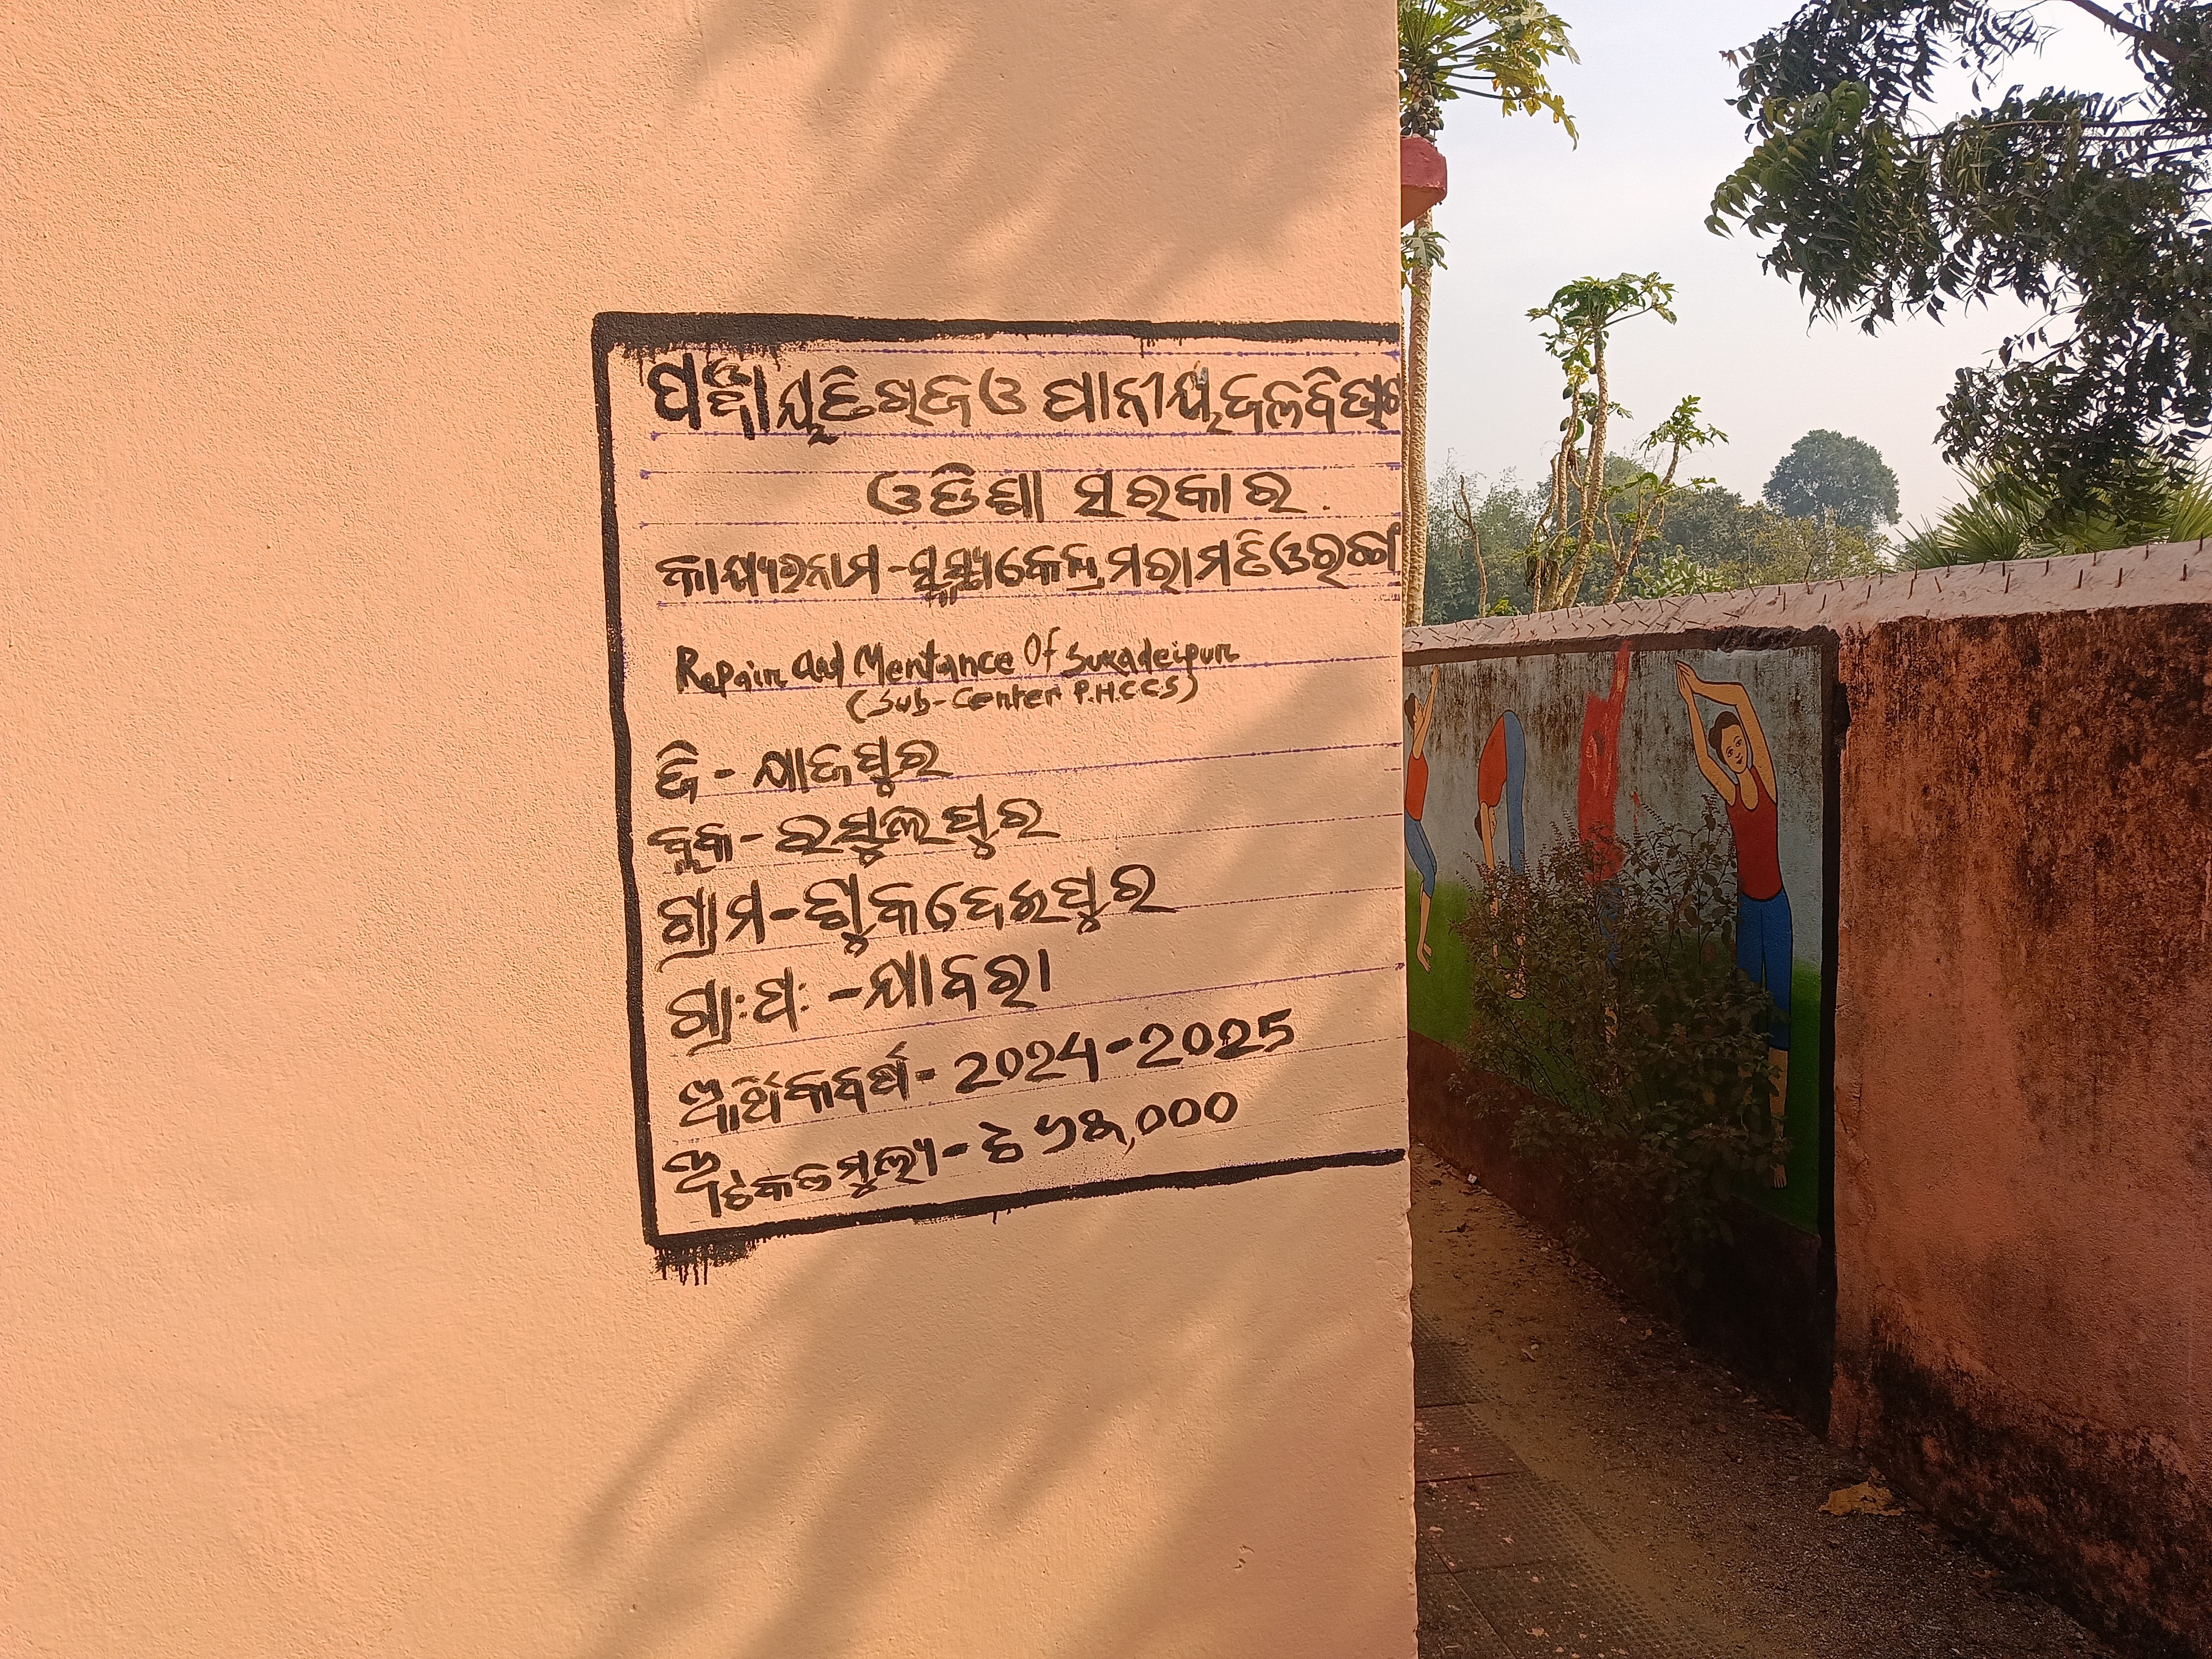 ପଞ୍ଚାୟତିରାଜ ଓ ପାନୀୟ ଜଳ ବିଭାଗ
ଓଡିଶା ସରକାର
କାର୍ଯ୍ୟରନାମ - ସ୍ୱାସ୍ଥ୍ୟକେନ୍ଦ୍ର ମରାମତି ଓ
Repair and Mentance Of Sukadeipur
(Sub-Center P.H.C.C.S)
ଜି - ଯାଜପୁର
ବ୍ଲକ - ରସୁଲପୁର
ଗ୍ରାମ - ଶୁକଦେଇପୁର
ଗ୍ରା:ପ: - ଯାବରା
ଆର୍ଥିକବର୍ଷ - 2024-2025
ଅଟକଳମୁଲ୍ୟ - ଟ